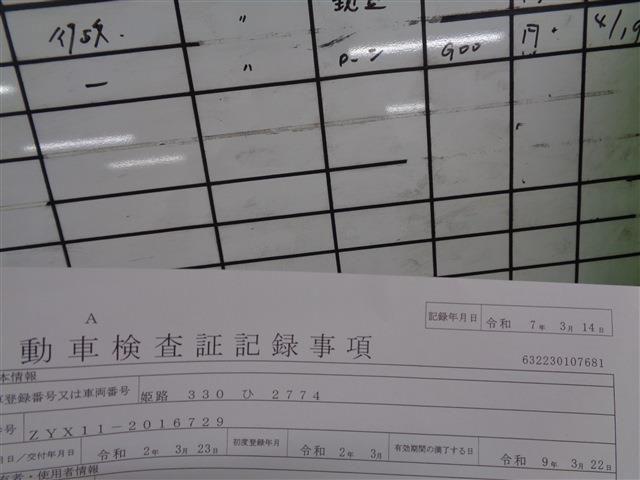 〃
〃 ローン 900 円
A
記録年月日 令和 7年 3月 14日
動車検査証記録事項
632230107681
本情報
登録番号又は車両番号 姫路 330 ひ 2774
番号 ZYX11-2016729
月日/交付年月日 令和 2年 3月 23日 初度登録年月 令和 2年 3月 有効期間の満了する日 令和 9年 3月 22日
有者・使用者情報